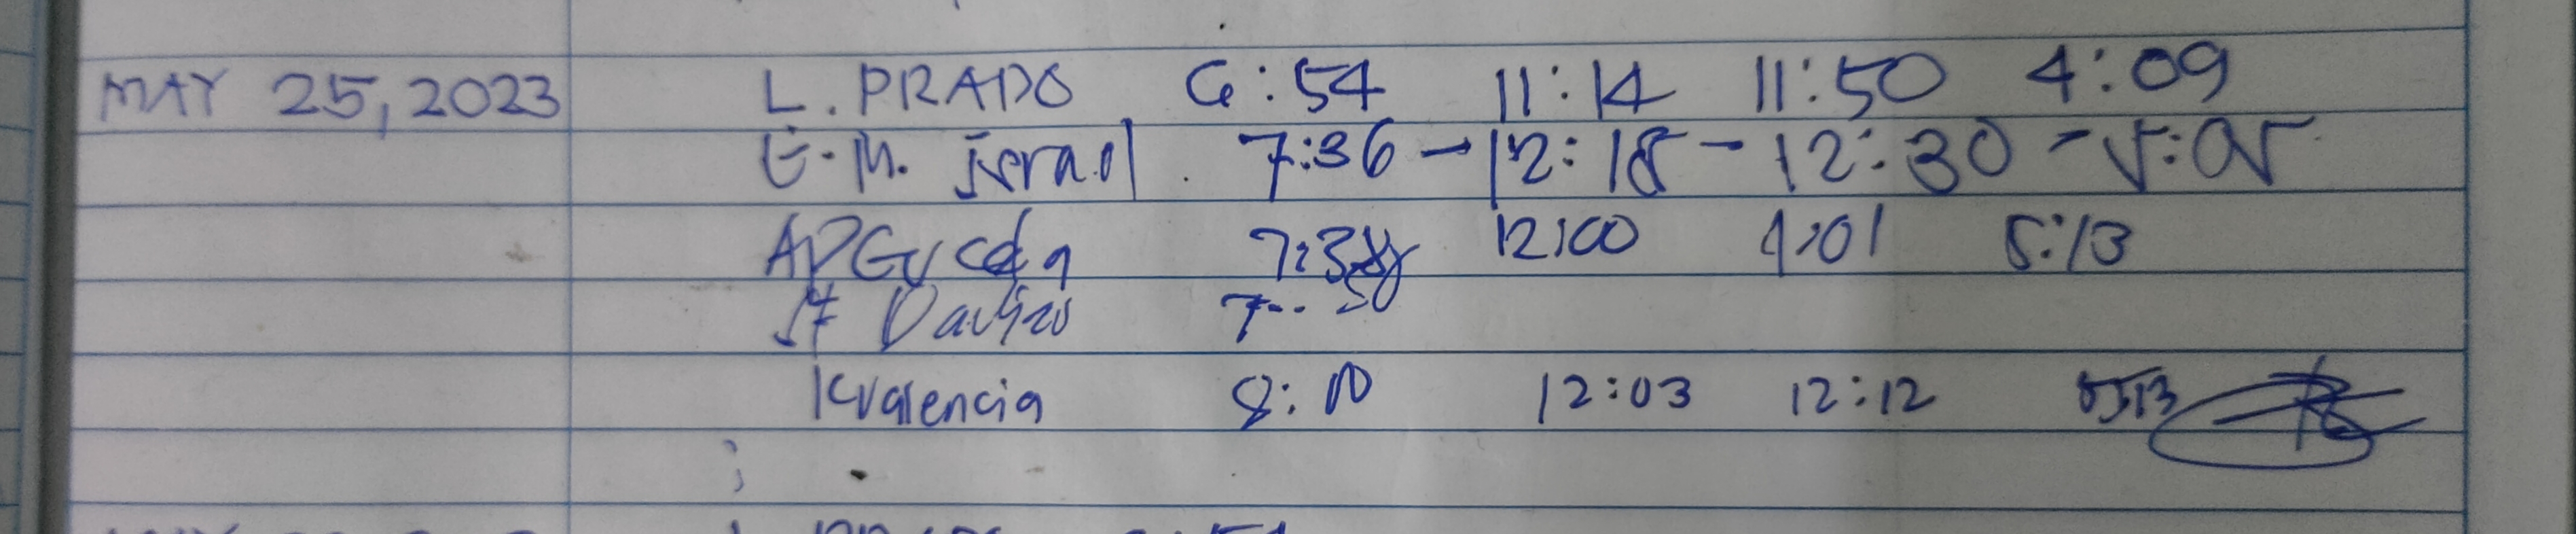 MAY 25, 2023 L. PRADO 6:54 11:14 11:50 4:09
E.M. Israel 7:36 - 12:18 - 12:30 - 5:05
7:38 12:00 1:01 5:13
7:50
KValencia 8:10 12:03 12:12 0513